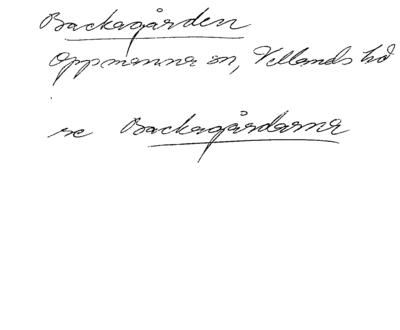 Backagården
Oppmanna sn, Villands hd
se Backagårdarna